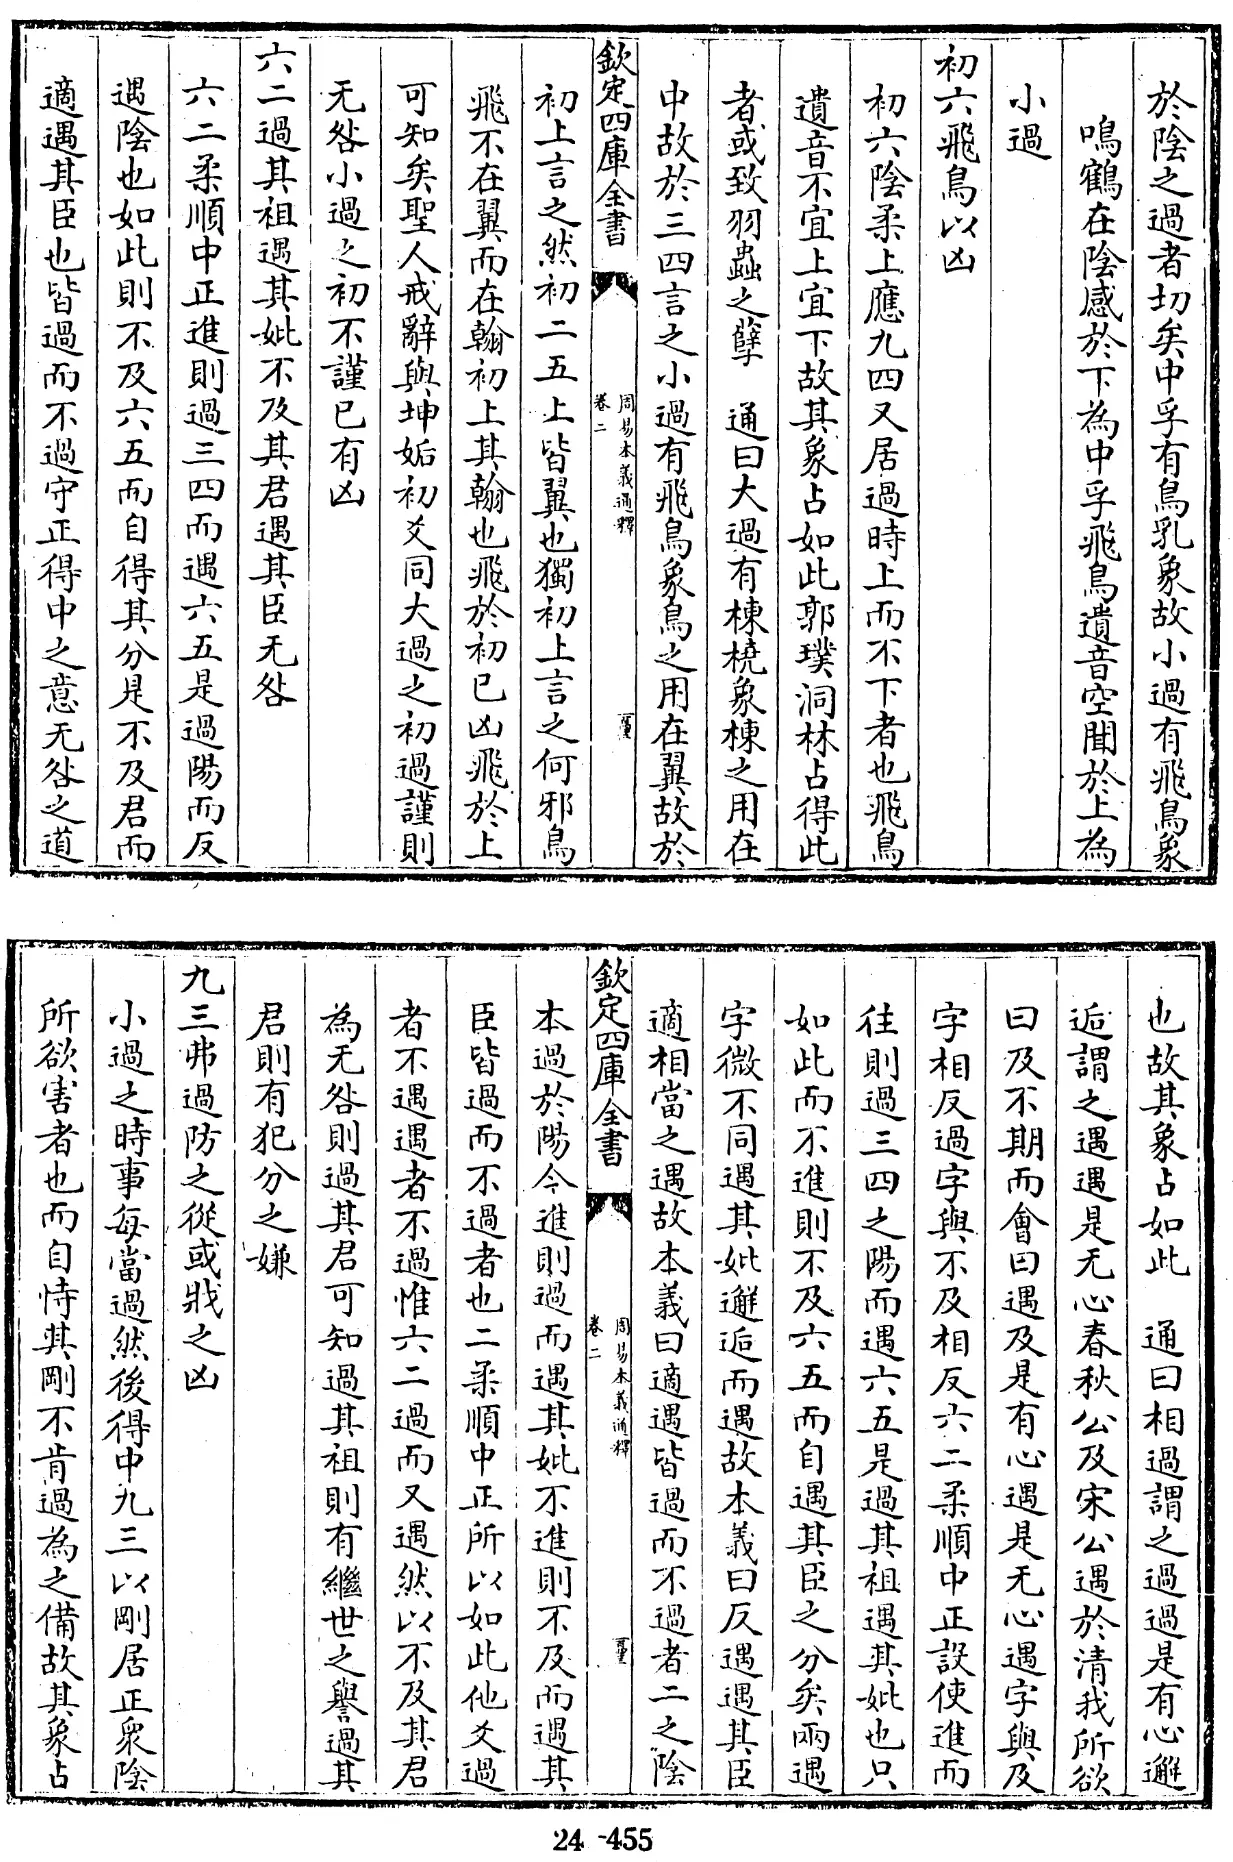 於陰之過者切矣中孚有鳥乳象故小過有飛鳥象
鳴鶴在陰感於下為中孚飛鳥遺音空聞於上為
小過
初六飛鳥以凶
初六陰柔上應九四又居過時上而不下者也飛鳥
遺音不宜上宜下故其象占如此郭璞洞林占得此
者或致羽蟲之孽　通曰大過有棟橈象棟之用在
中故於三四言之小過有飛鳥象鳥之用在翼故於
欽定四庫全書
周易本義通釋
卷二
初上言之然初二五上皆翼也獨初上言之何邪鳥
飛不在翼而在翰初上其翰也飛於初已凶飛於上
可知矣聖人戒辭與坤姤初爻同大過之初過謹則
无咎小過之初不謹已有凶
六二過其祖遇其妣不及其君遇其臣无咎
六二柔順中正進則過三四而遇六五是過陽而反
遇陰也如此則不及六五而自得其分是不及君而
適遇其臣也皆過而不過守正得中之意无咎之道
也故其象占如此　通曰相過謂之過過是有心邂
逅謂之遇遇是无心春秋公及宋公遇於清我所欲
曰及不期而會曰遇及是有心遇是无心遇字與及
字相反過字與不及相反六二柔順中正設使進而
往則過三四之陽而遇六五是過其祖遇其妣也只
如此而不進則不及六五而自遇其臣之分矣兩遇
字微不同遇其妣邂逅而遇故本義曰反遇遇其臣
適相當之遇故本義曰適遇皆過而不過者二之陰
欽定四庫全書
周易本義通釋
卷二
本過於陽今進則過而遇其妣不進則不及而遇其
臣皆過而不過者也二柔順中正所以如此他爻過
者不遇遇者不過惟六二過而又遇然以不及其君
為无咎則過其君可知過其祖則有繼世之譽過其
君則有犯分之嫌
九三弗過防之從或戕之凶
小過之時事每當過然後得中九三以剛居正衆陰
所欲害者也而自恃其剛不肯過為之備故其象占
24-455